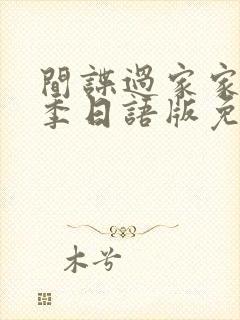 間諜過家家
季日語版免
木兮